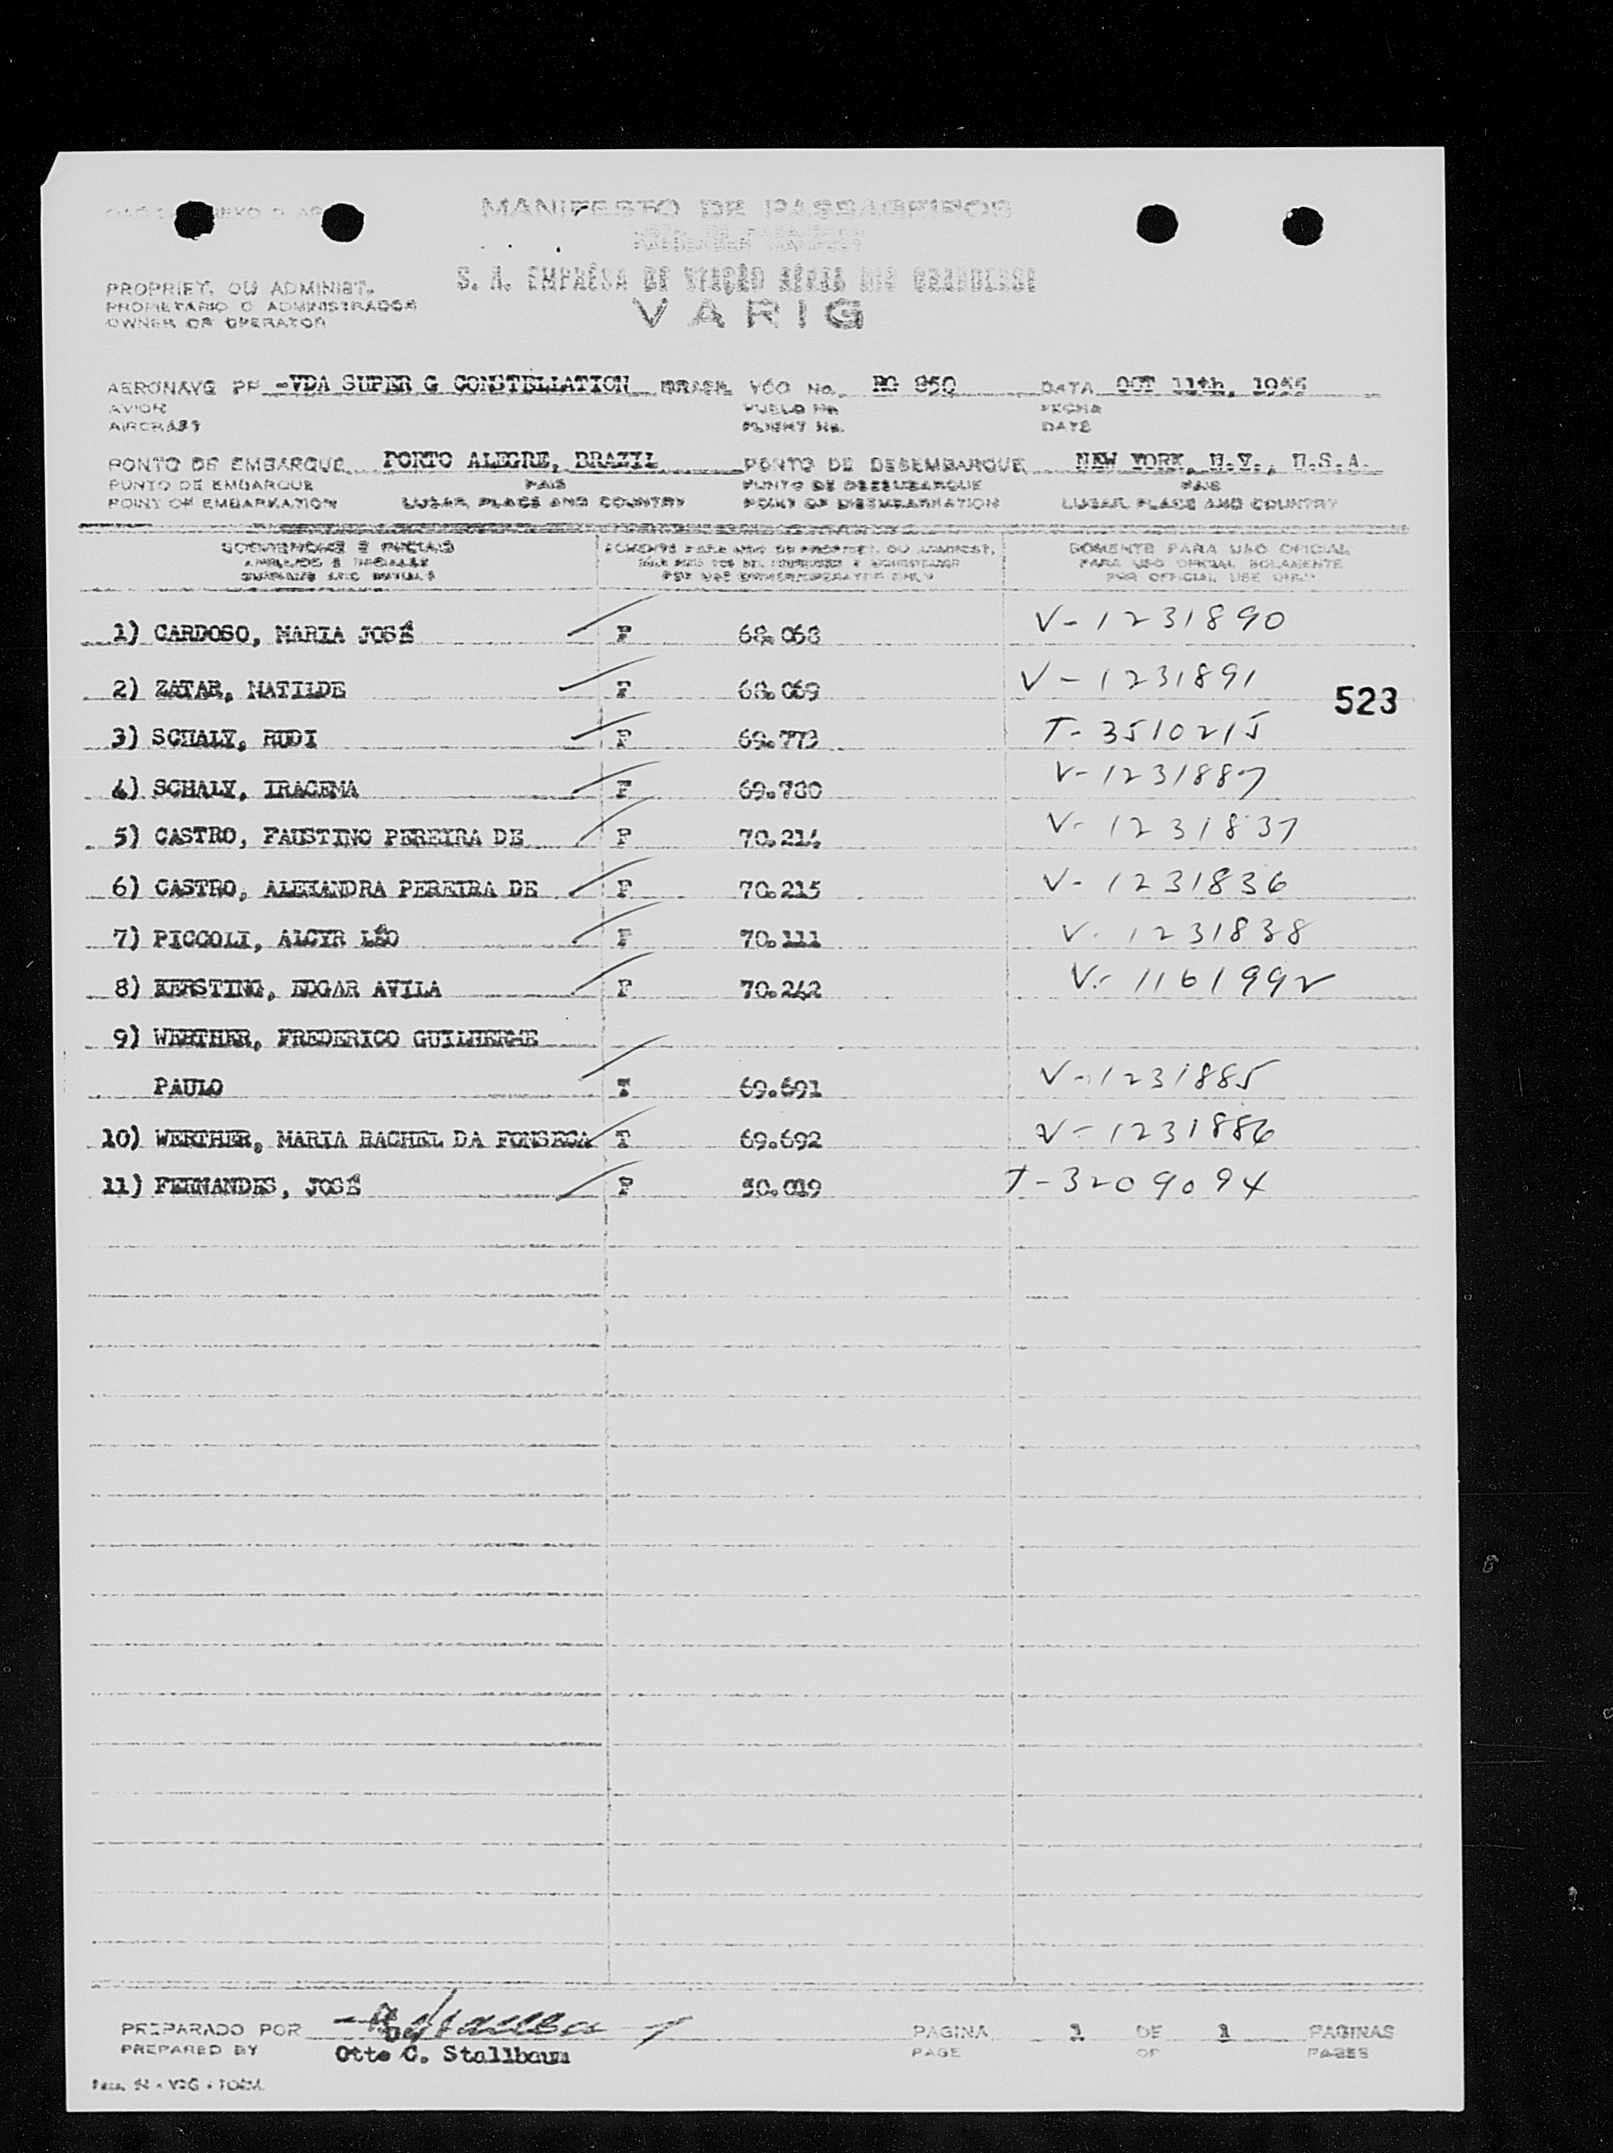 MANIFESTO DE PASSAGEIROS
S. A. EMPRÊSA DE VIAÇÃO AÉREA RIO GRANDENSE
VARIG
PROPRIET. OU ADMINIST.
PROPIETARIO O ADMINISTRADOR
OWNER OR OPERATOR
AERONAVE PP -VDA SUPER G CONSTELLATION BRASIL VÔO No. RG 850 DATA OCT 11th, 1955
AVION VUELO No. FECHA
AIRCRAFT FLIGHT No. DATE
PONTO DE EMBARQUE PORTO ALEGRE, BRAZIL PONTO DE DESEMBARQUE NEW YORK, N.Y., U.S.A.
PUNTO DE EMBARQUE PAIS PUNTO DE DESEMBARQUE PAIS
POINT OF EMBARKATION LUGAR, PLACE AND COUNTRY POINT OF DISEMBARKATION LUGAR, PLACE AND COUNTRY
SOBRENOMES E INICIAIS SOMENTE PARA USO DO PROPRIET. OU ADMINIST. SOMENTE PARA USO OFICIAL
APELLIDOS E INICIALES PARA USO OFICIAL SOLAMENTE
SURNAME AND INITIALS FOR USE OWNER/OPERATOR ONLY FOR OFFICIAL USE ONLY
1) CARDOSO, MARIA JOSÉ F 68.068 V-1231890
2) ZATAR, MATILDE F 68.069 V-1231891
523
3) SCHALY, RUDI F 69.773 T-3510215
4) SCHALY, IRACEMA F 69.780 V-1231887
5) CASTRO, FAUSTINO PEREIRA DE F 70.214 V-1231837
6) CASTRO, ALEXANDRA PEREIRA DE F 70.215 V-1231836
7) PICCOLI, ALCYR LÉO F 70.111 V-1231838
8) KERSTING, EDGAR AVILA F 70.242 V-1161992
9) WERTHER, FREDERICO GUILHERME
PAULO T 69.691 V-1231885
10) WERTHER, MARIA RACHEL DA FONSECA T 69.692 V-1231886
11) FERNANDES, JOSÉ F 50.019 T-3209094
PREPARADO POR PAGINA 1 DE 1 PAGINAS
PREPARED BY Otto C. Stallbaum PAGE OF PAGES